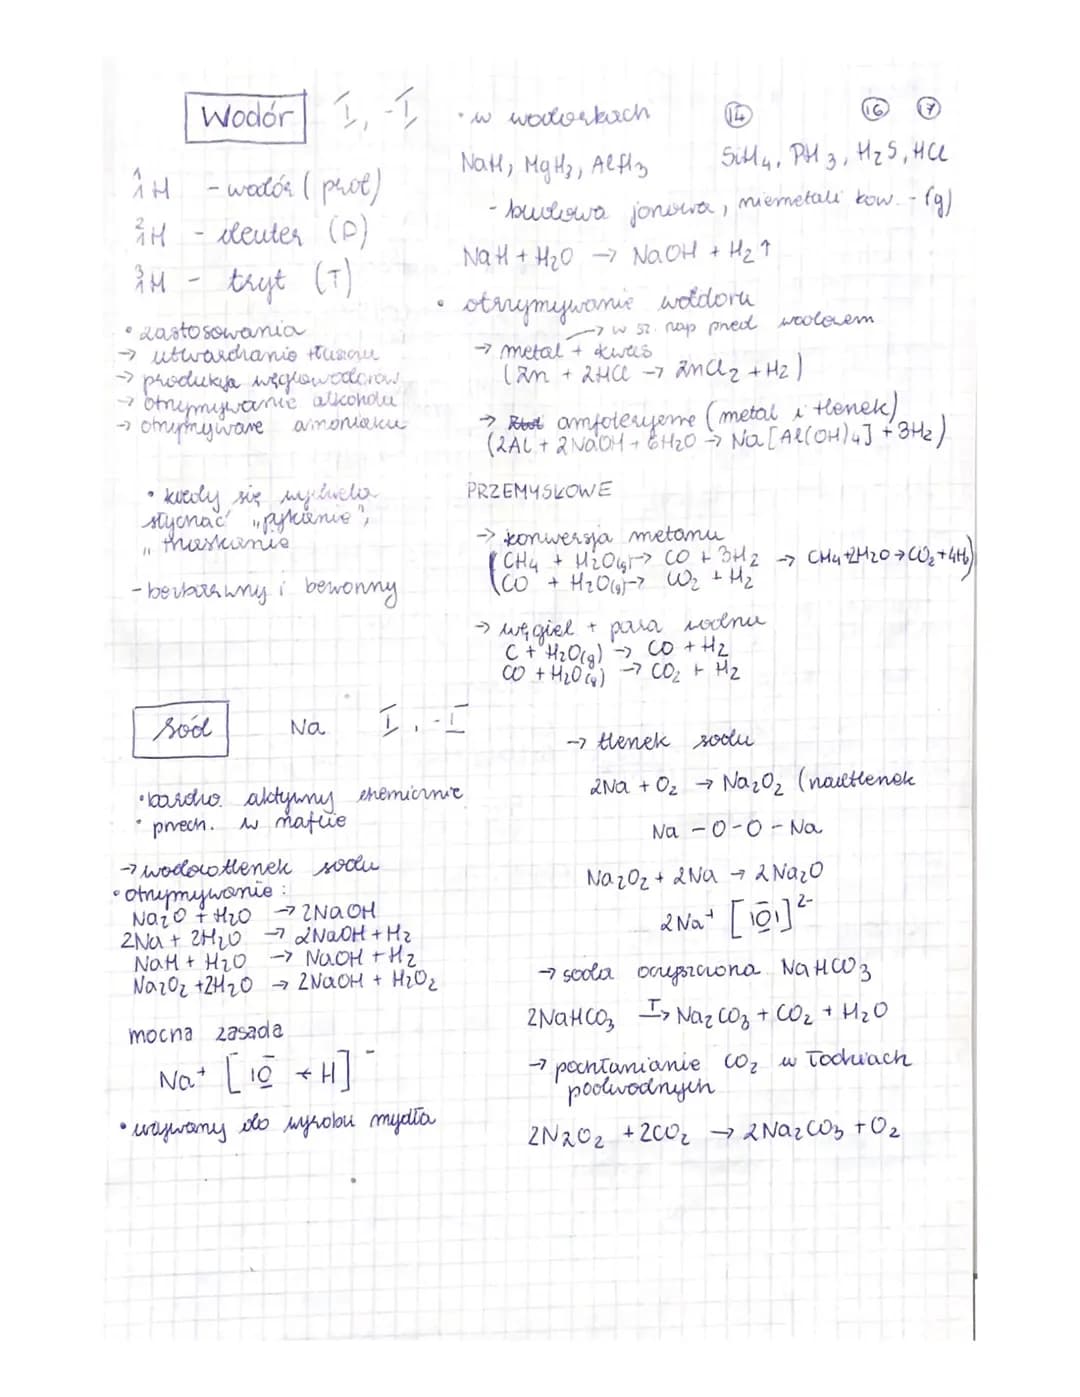 Wodór I, -I
¹₁H - wodór (prot)
²₁H - deuter (D)
³₁H - tryt (T)
• zastosowania
→ utwardzanie tłuszczu
→ produkcja węglowodorów
→ otrzymywanie alkoholu
→ otrzymywanie amoniaku
• kiedy się wydziela
słychać „pykanie”,
„trzaskanie
- bezbarwny i bezwonny
• w wodorkach (14) (16) (17)
NaH, MgH₂, AlH₃ SiH₄, PH₃, H₂S, HCl
- budowa jonowa, niemetali kow. - (g)
NaH + H₂O → NaOH + H₂↑
• otrzymywanie wodoru
→ w sz. nap przed wodorem
→ metal + kwas
(Zn + 2HCl → ZnCl₂ + H₂)
→ amfoteryczne (metal i tlenek)
(2Al + 2NaOH + 6H₂O → Na[Al(OH)₄] + 3H₂)
PRZEMYSŁOWE
→ konwersja metanu
(CH₄ + H₂O(g) → CO + 3H₂ → CH₄+2H₂O→CO₂+4H₂)
CO + H₂O(g) → CO₂ + H₂
→ węgiel + para wodna
C + H₂O(g) → CO + H₂
CO + H₂O(g) → CO₂ + H₂
Sód Na I, -I
• bardzo aktywny chemicznie
• przech. w nafcie
→ wodorotlenek sodu
• otrzymywanie:
Na₂O + H₂O → 2NaOH
2Na + 2H₂O → 2NaOH + H₂
NaH + H₂O → NaOH + H₂
Na₂O₂ + 2H₂O → 2NaOH + H₂O₂
mocna zasada
Na⁺ [|O̅ ← H]⁻
• używany do wyrobu mydła
→ tlenek sodu
2Na + O₂ → Na₂O₂ (nadtlenek
Na - O - O - Na
Na₂O₂ + 2Na → 2Na₂O
2Na⁺ [|O̅|]²⁻
→ soda oczyszczona NaHCO₃
2NaHCO₃ T→ Na₂CO₃ + CO₂ + H₂O
→ pochłanianie CO₂ w łodziach
podwodnych
2N₂O₂ + 2CO₂ → 2Na₂CO₃ + O₂